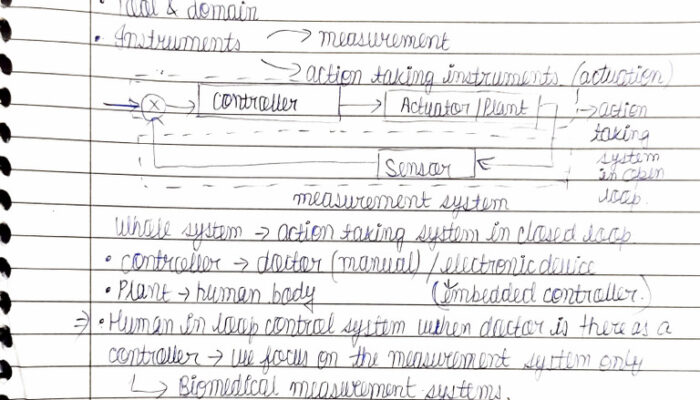 & domain
• Instruments → measurement
→ action taking instruments (actuation)
× → controller → Actuator/Plant → action
taking
system
in open
loop.
Sensor
measurement system
Whole system → action taking system in closed loop
• controller → doctor (manual) / electronic device
• Plant → human body (embedded controller.)
⇒ • Human in loop control system when doctor is there as a
controller → we focus on the measurement system only
↳ Biomedical measurement systems.